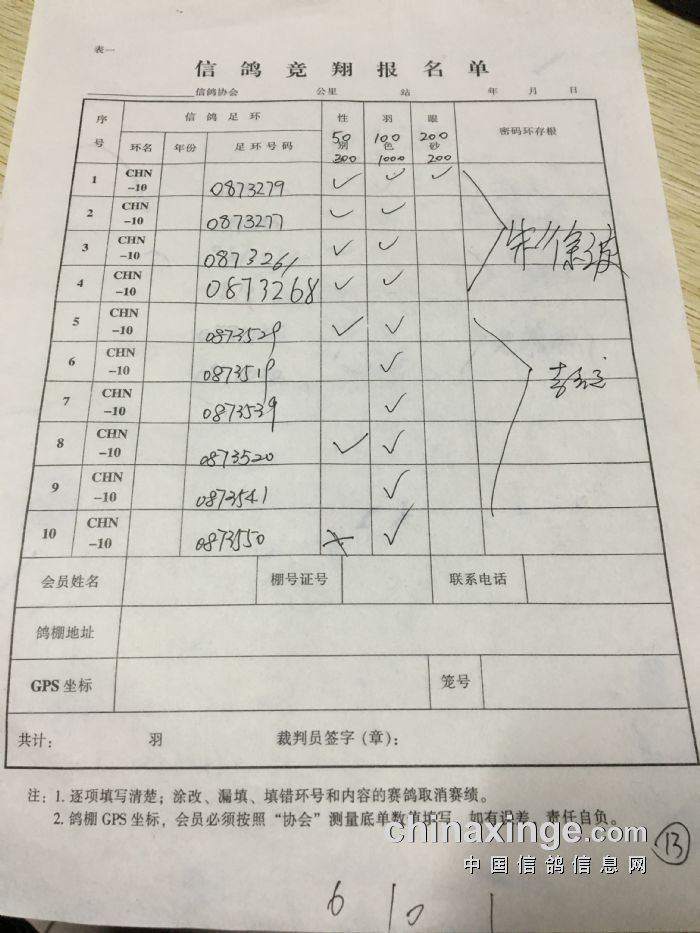 表一
信鸽竞翔报名单
信鸽协会 公里 站 年 月 日
序号 信鸽足环 性别 羽色 眼砂 密码环存根
环名 年份 足环号码 50 200 100 1000 200 200
1 CHN-10 0873279 ✓ ✓ ✓
2 CHN-10 0873277 ✓ ✓
3 CHN-10 0873261 ✓ ✓
4 CHN-10 0873268 ✓ ✓
5 CHN-10 0873529 ✓ ✓
6 CHN-10 0873519 ✓
7 CHN-10 0873539 ✓
8 CHN-10 0873520 ✓ ✓
9 CHN-10 0873541 ✓
10 CHN-10 0873550 ✓
会员姓名 棚号证号 联系电话
鸽棚地址
GPS坐标 笼号
共计: 羽 裁判员签字(章):
注:1. 逐项填写清楚;涂改、漏填、填错环号和内容的赛鸽取消赛绩。
2. 鸽棚GPS坐标,会员必须按照“协会”测量底单数值填写,如有误差,责任自负。
chinaxinge.com
中国信鸽信息网
13
6 10 1